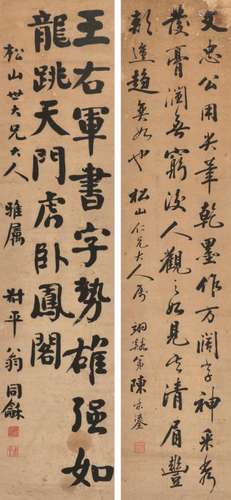 文忠公用尖筆乾墨作方闊字神采秀
發膏潤無窮後人觀之如見其清眉豐
頰進趨奕如也 松山仁兄大人属 弟陳
王右軍書字勢雄強如
龍跳天門虎卧鳳閣
松山世大兄大人 雅属 叔平翁同龢